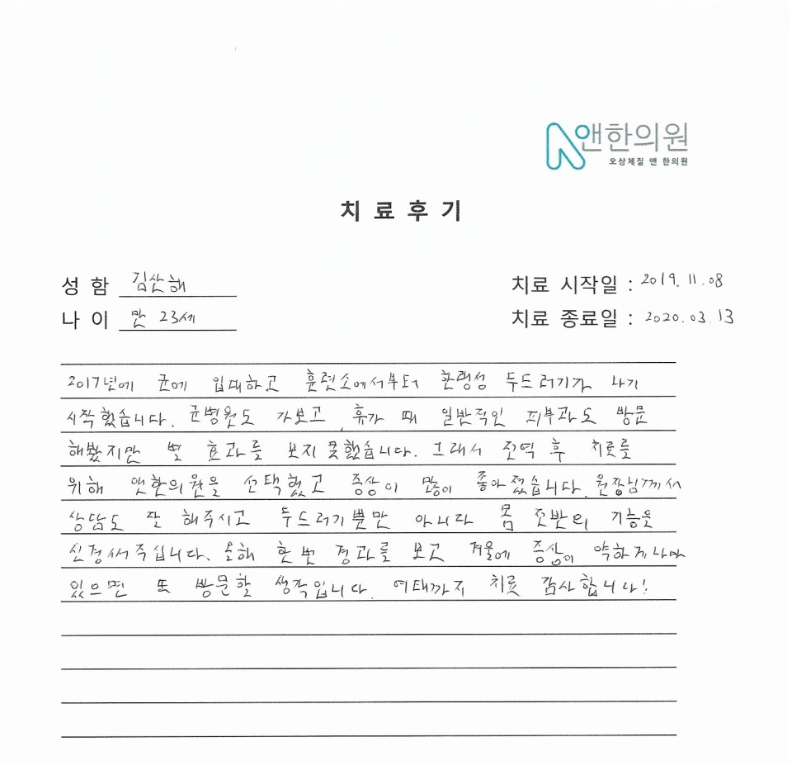 앤한의원
오상체질 앤 한의원
치료후기
성 함 김산해
치료 시작일 : 2019.11.08
나 이 만 23세
치료 종료일 : 2020.03.13
2017년에 군에 입대하고 훈련소에서부터 한랭성 두드러기가 나기
시작했습니다. 군병원도 가보고, 휴가 때 일반적인 피부과도 방문
해봤지만 별 효과를 보지 못했습니다. 그래서 전역 후 치료를
위해 앤한의원을 선택했고 증상이 많이 좋아졌습니다. 원장님께서
상담도 잘 해주시고 두드러기뿐만 아니라 몸 전반의 기능을
신경써주십니다. 올해 한 번 경과를 보고 겨울에 증상이 약하게나마
있으면 또 방문할 생각입니다. 여태까지 치료 감사합니다!